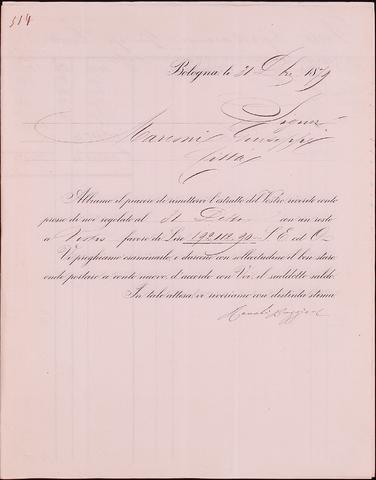 514
Bologna, li 31 Dbre 1879
Signor
Marconi Giuseppe
Città
Abbiamo il piacere di rimettervi l'estratto del Vostro ricorde conto
presso di noi regolato al 31 Detto con un resto
a Vostro favore di Lire 192.112.90 S. E. ed O.
Vi preghiamo esaminarlo, e darcene con sollecitudine il ben stare
onde portare a conto nuovo, d'accordo con Voi, il suddetto saldo.
In tale attesa vi riveriamo con distinta stima